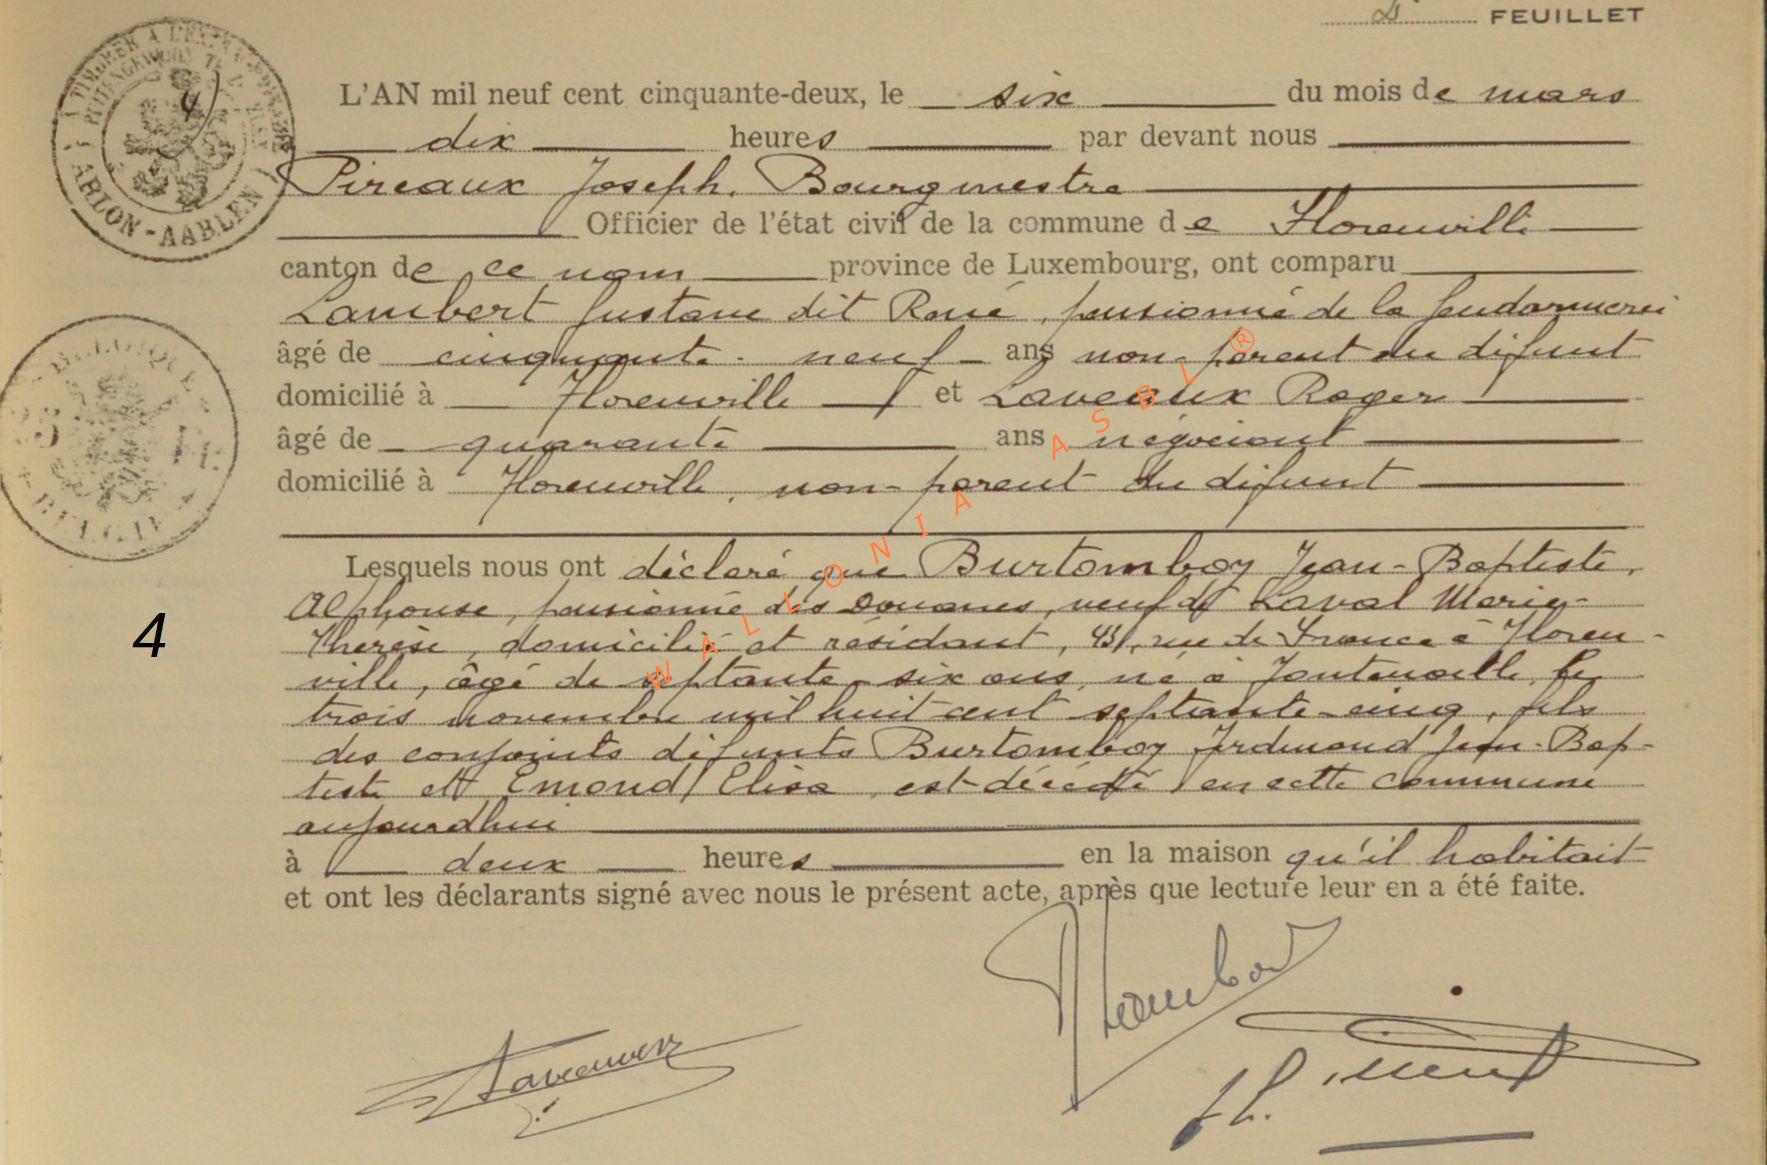 FEUILLET
L'AN mil neuf cent cinquante-deux, le six du mois de mars
dix heures par devant nous
Pireaux Joseph, Bourgmestre
Officier de l'état civil de la commune de Florenville
canton de ce nom province de Luxembourg, ont comparu
Lambert Gustave dit René, pensionné de la gendarmerie
âgé de cinquante-neuf ans non-parent du défunt
domicilié à Florenville et Laveaux Roger
âgé de quarante ans négociant
domicilié à Florenville, non-parent du défunt
Lesquels nous ont déclaré que Burtomboy Jean-Baptiste,
Alphonse, pensionné des Douanes, veuf de Laval Marie-
Thérèse, domicilié et résidant, rue de France à Floren-
ville, âgé de septante-six ans, né à Fontenoille, le
trois novembre mil huit cent septante-cinq, fils
des conjoints défunts Burtomboy Ferdinand Jean-Bap-
tiste et Emond Elisa est décédé en cette commune
aujourdhui
à deux heures en la maison qu'il habitait
et ont les déclarants signé avec nous le présent acte, après que lecture leur en a été faite.
4
ARLON-AARLEN
BELGIQUE
BELGIE
WALLONIA ASBL ®